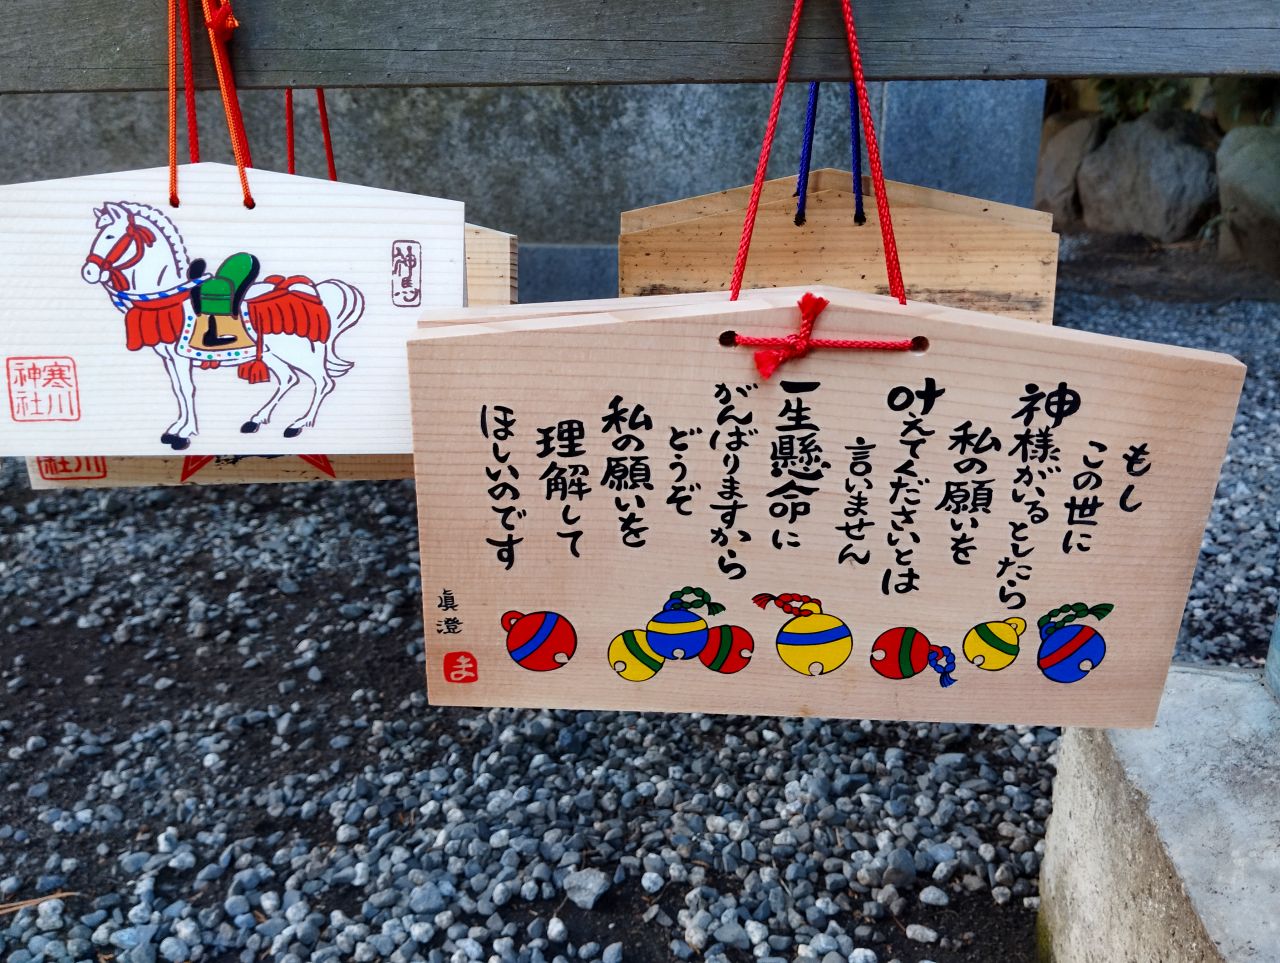 もし
この世に
神様がいるとしたら
私の願いを
叶えてくださいとは
言いません
一生懸命に
がんばりますから
どうぞ
私の願いを
理解して
ほしいのです
眞澄
ま
神馬
寒川
神社
社川